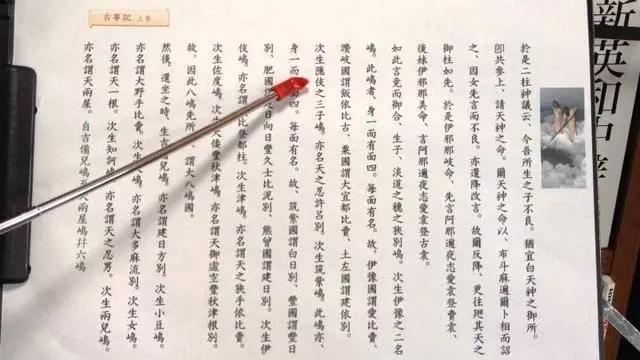 新英和中
於是二柱神議云、今吾所生之子不良。猶宜白天神之御所。
卽共參上、請天神之命。爾天神之命以、布斗麻邇爾卜相而詔
之、因女先言而不良。亦還降改言。故爾反降、更往廻其天之
御柱如先。於是伊邪那岐命、先言阿那邇夜志愛袁登賣袁、
後妹伊邪那美命、言阿那邇夜志愛袁登古袁。
如此言竟而御合、生子、淡道之穗之狹別嶋。次生伊豫之二名
嶋。此嶋者、身一而有面四。每面有名。故、伊豫國謂愛比賣、
讚岐國謂飯依比古、粟國謂大宜都比賣、土左國謂建依別。
次生隱伎之三子嶋。亦名天之忍許呂別。次生筑紫嶋。此嶋亦、
身一而面四。每面有名。故、筑紫國謂白日別、豐國謂豐日
別、肥國日向日豐久士比泥別、熊曾國謂建日別。次生伊
伎嶋。亦名謂比登都柱。次生津嶋。亦名謂天之狹手依比賣。
次生佐度嶋。次大倭豐秋津嶋。亦名謂天御虛空豐秋津根別。
故、因此八嶋先所、謂大八嶋國。
然後、還坐之時、生吉兒嶋。亦名謂建日方別。次生小豆嶋。
亦名謂大野手比賣。次生大嶋。亦名謂大多麻流別。次生女嶋。
亦名謂天一根。次生知訶嶋。亦名謂天之忍男。次生兩兒嶋。
亦名謂天兩屋。自吉備兒嶋天兩屋嶋幷六嶋
古事記 上卷